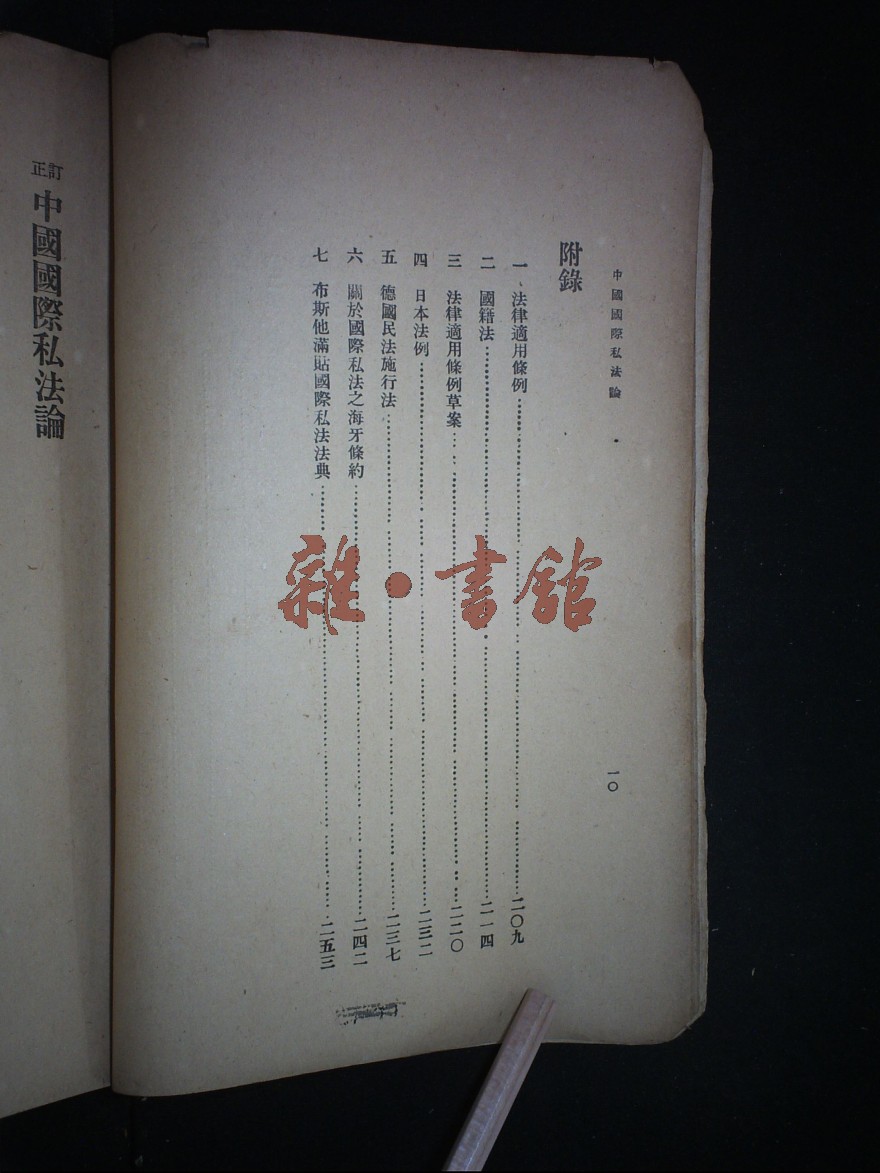 中國國際私法論
一〇
附錄
一、法律適用條例……二〇九
二 國籍法……二一四
三 法律適用條例草案……二二〇
四 日本法例……二三二
五 德國民法施行法……二三七
六 關於國際私法之海牙條約……二四二
七 布斯他滿貼國際私法法典……二五三
訂正
中國國際私法論
雜·書館